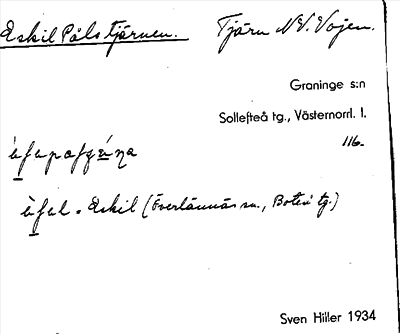 Eskil Påls tjärnen. Tjärn NV. Vojen.
Graninge s:n
Sollefteå tg., Västernorrl. l.
116.
Eskil (Överlännäs sn., Boteå tg.)
Sven Hiller 1934